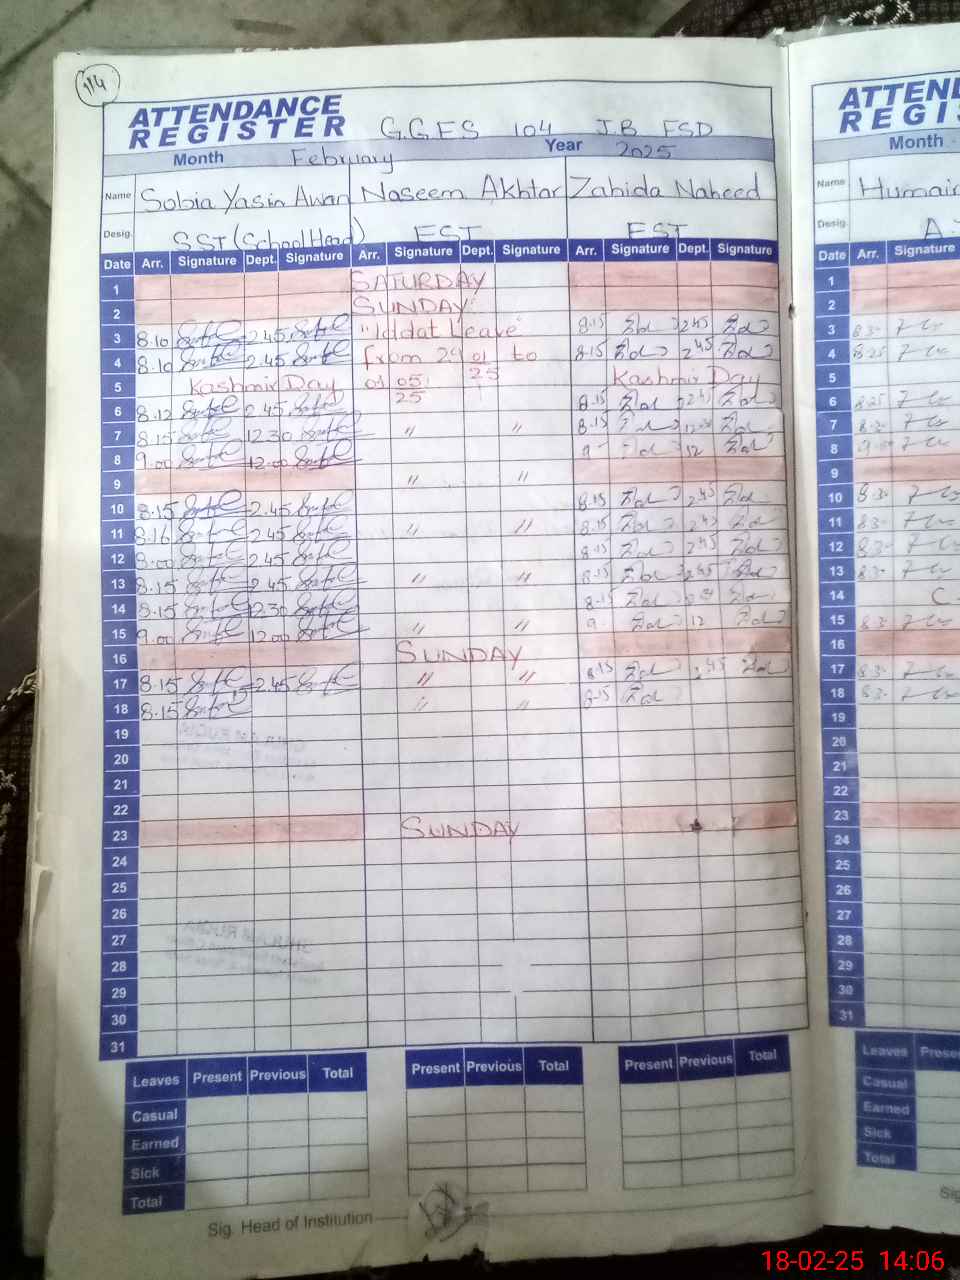 114
ATTENDANCE
REGISTER G.G.E.S 104 J.B FSD
Month February Year 2025
Name Sobia Yasin Awan Naseem Akhtar Zahida Naheed
Desig. SST (School Head) EST EST
Date Arr. Signature Dept. Signature Arr. Signature Dept. Signature Arr. Signature Dept. Signature
1 SATURDAY
2 SUNDAY
3 8.10 2.45 "Iddat Leave" 8.15 2.45
4 8.10 2.45 from 24 01 25 to 8.15 2.45
5 Kashmir Day 01 05 25 Kashmir Day
6 8.12 2.45 8.15 2.45
7 8.15 12.30 " " 8.15 12.30
8 9.00 12.00 9 12
9 " "
10 8.15 2.45 8.15 2.45
11 8.16 2.45 " " 8.15 2.45
12 8.00 2.45 8.15 2.45
13 8.15 2.45 " " 8.15 2.45
14 8.15 12.30 8.15
15 9.00 12.00 " " 9. 12
16 SUNDAY
17 8.15 2.45 " " 8.15 2.45
18 8.15 " " 8.15
19
20
21
22
23 SUNDAY
24
25
26
27
28
29
30
31
Leaves Present Previous Total Present Previous Total Present Previous Total
Casual
Earned
Sick
Total
Sig. Head of Institution
ATTEN
REGIS
Month
Name Humair
Desig. A.
Date Arr. Signature
1
2
3 8.3
4 8.25
5
6 8.25
7
8
9
10 8.3
11 8.3
12 8.3
13 8.3
14 C
15 8.3
16
17 8.3
18 8.3
19
20
21
22
23
24
25
26
27
28
29
30
31
Leaves Prese
Casual
Earned
Sick
Total
Sig
18-02-25 14:06